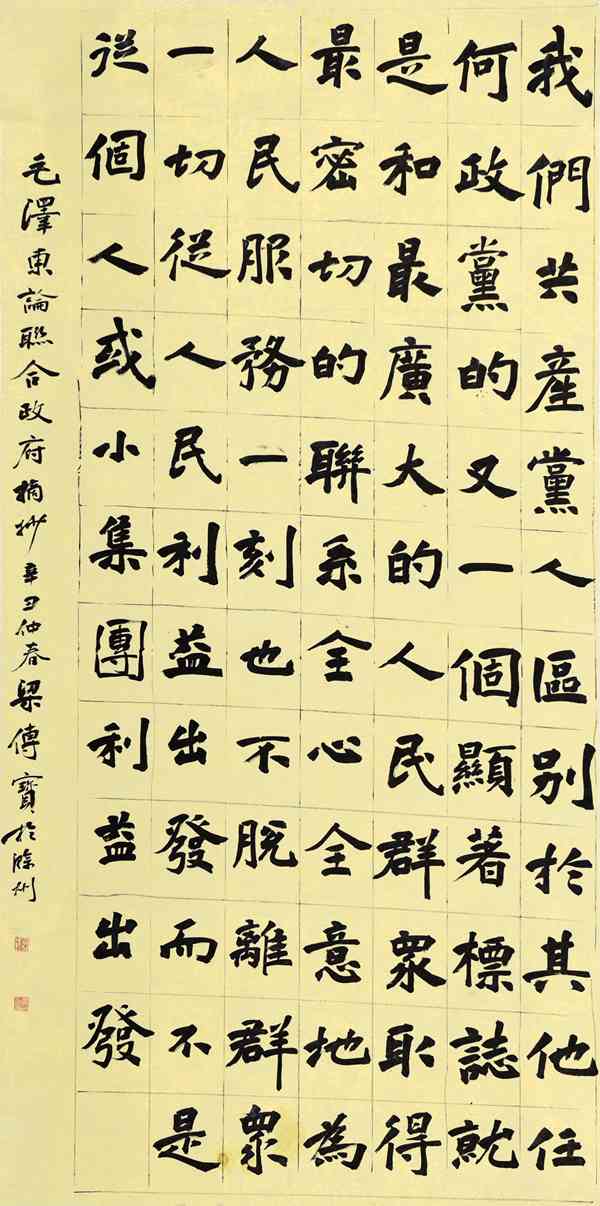 我們共產黨人區別於其他任
何政黨的又一個顯著標誌就
是和最廣大的人民群眾取得
最密切的聯系全心全意地為
人民服務一刻也不脫離群眾
一切從人民利益出發而不是
從個人或小集團利益出發
毛澤東論聯合政府摘抄辛丑仲春梁傳寶於滁州